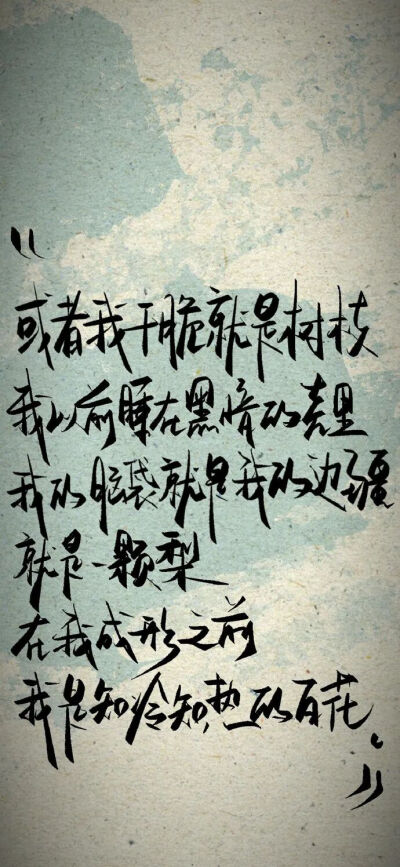 “
或者我干脆就是树枝
我以前睡在黑暗的壳里
我的脑袋就是我的边疆
就是一颗梨
在我成形之前
我是知冷知热的百花。
”